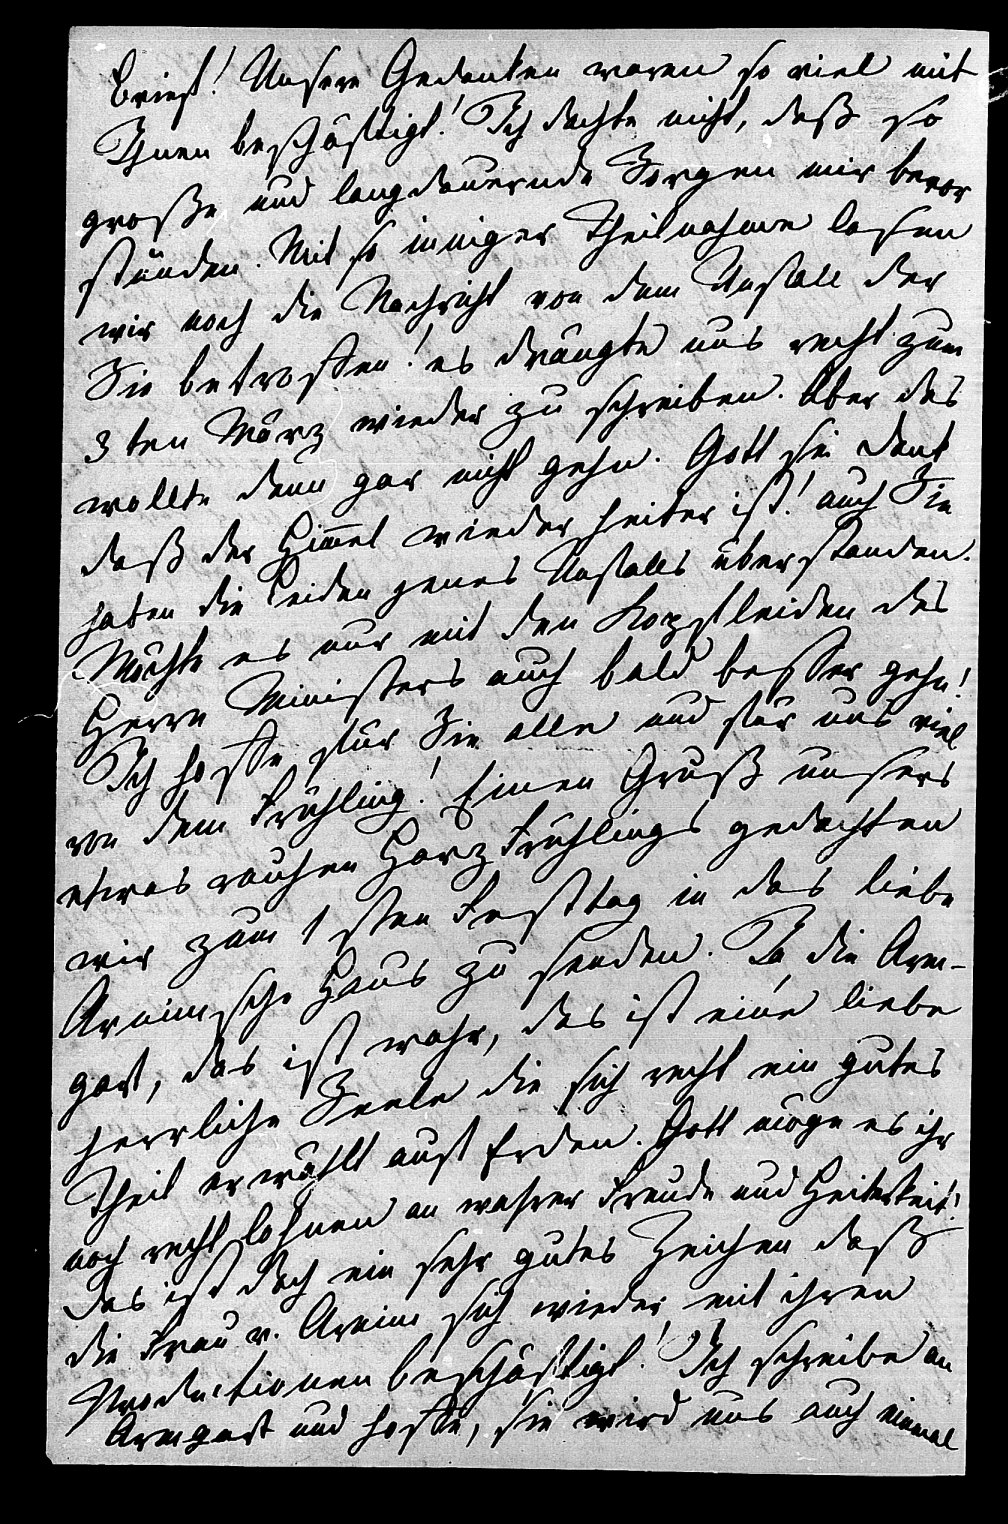 Brief! Unsere Gedanken waren so viel mit
Ihnen beschäftigt! Ich dachte nicht, daß so
große und langdauernde Sorgen mir bevor
ständen. Mit so inniger Theilnahme lasen
wir noch die Nachricht von dem Unfall der
Sie betroffen! es drängte uns recht zum
3ten März wieder zu schreiben. Aber das
wollte denn gar nicht gehn. Gott sei Dank
daß der Himmel wieder heiter ist! auch Sie
haben die Leiden jenes Unfalls überstanden.
Möchte es nur mit den Kopfleiden des
Herrn Ministers auch bald besser gehn!
Ich hoffe für Sie alle und für uns viel
von dem Frühling! Einen Gruß unsers
etwas rauhen Harz Frühlings gedachten
wir zum 1sten Festtag in das liebe
Arnimsche Haus zu senden. Ja die Arm-
gart, das ist wahr, das ist eine liebe
herrliche Seele die sich recht ein gutes
Theil erwählt auf Erden. Gott möge es ihr
noch recht lohnen an wahrer Freude und Heiterkeit!
Das ist doch ein sehr gutes Zeichen daß
die Frau v. Arnim sich wieder mit ihren
Productionen beschäftigt! Ich schreibe an
Armgart und hoffe, sie wird uns auch einmal